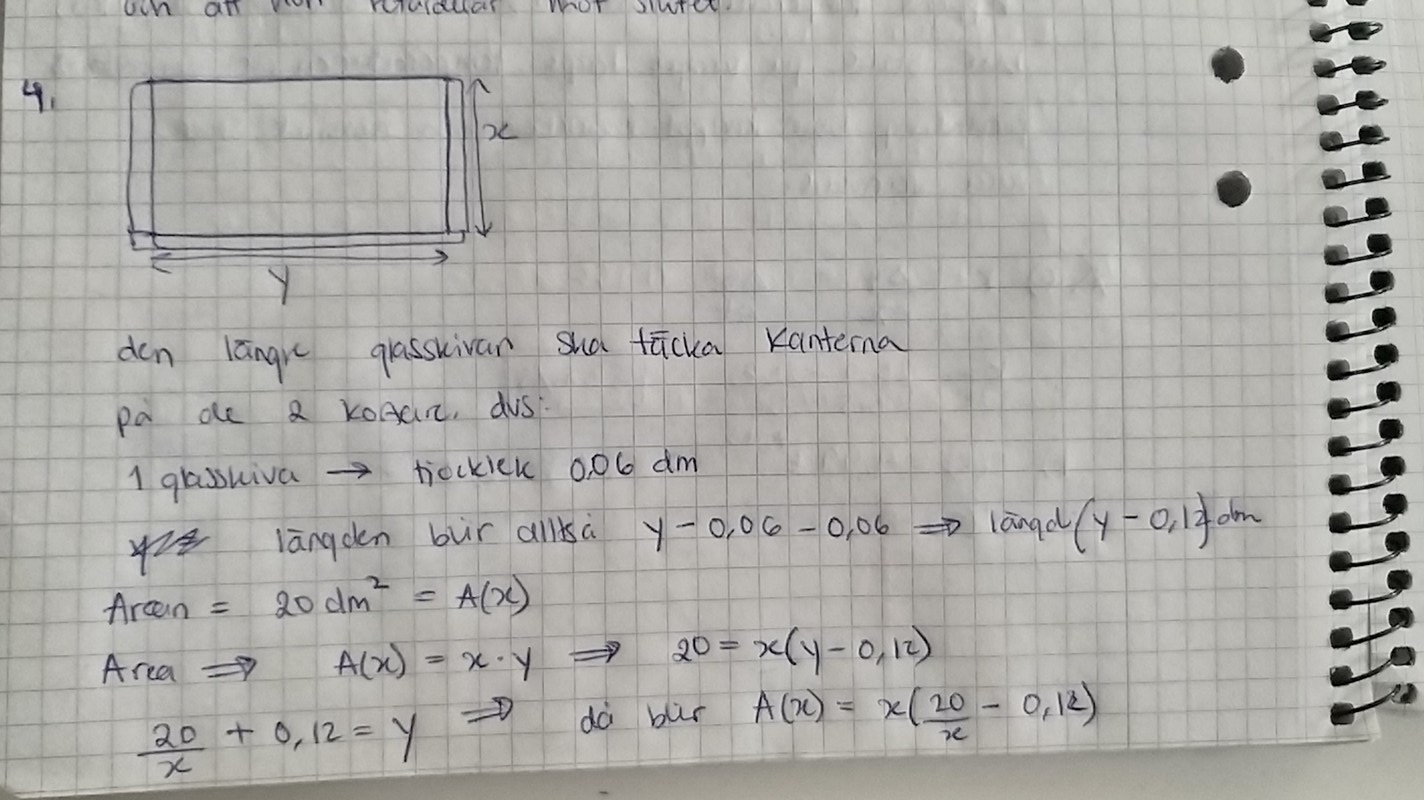 och att hon retarderar mot slutet.
4.
x
y
den längre glasskivan ska täcka kanterna
på de 2 dvs:
1 glasskiva → tjocklek 0,06 dm
längden blir alltså y - 0,06 - 0,06 ⇒ längd (y - 0,12) dm
Arean = 20 dm² = A(x)
Area ⇒ A(x) = x · y ⇒ 20 = x(y - 0,12)
20/x + 0,12 = y ⇒ då blir A(x) = x(20/x - 0,12)